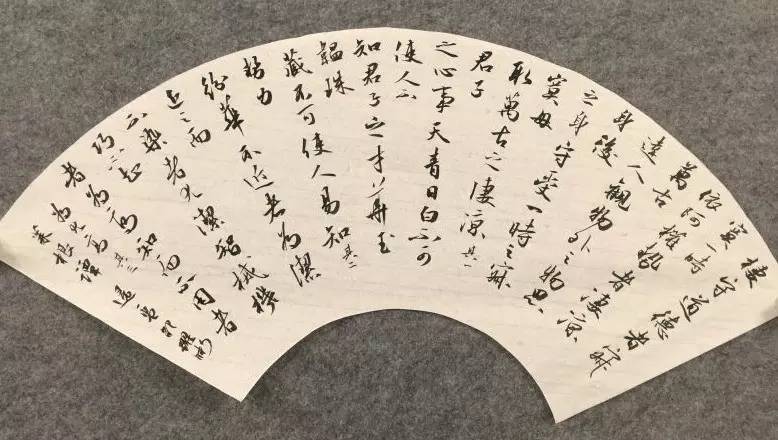 棲守道德者寂
寞一時
依阿權勢者淒涼
萬古
達人觀物外之物思
身後
之身守受一時之寂
寞毋
取萬古之淒涼其一
君子
之心事天青日白不可
使人不
知君子之才華玉
韞珠
藏不可使人易知其二
勢力
紛華不近者為潔
近之而
不染者尤潔智械機
巧不知
者為高知而不用者
為尤高其三
菜根譚